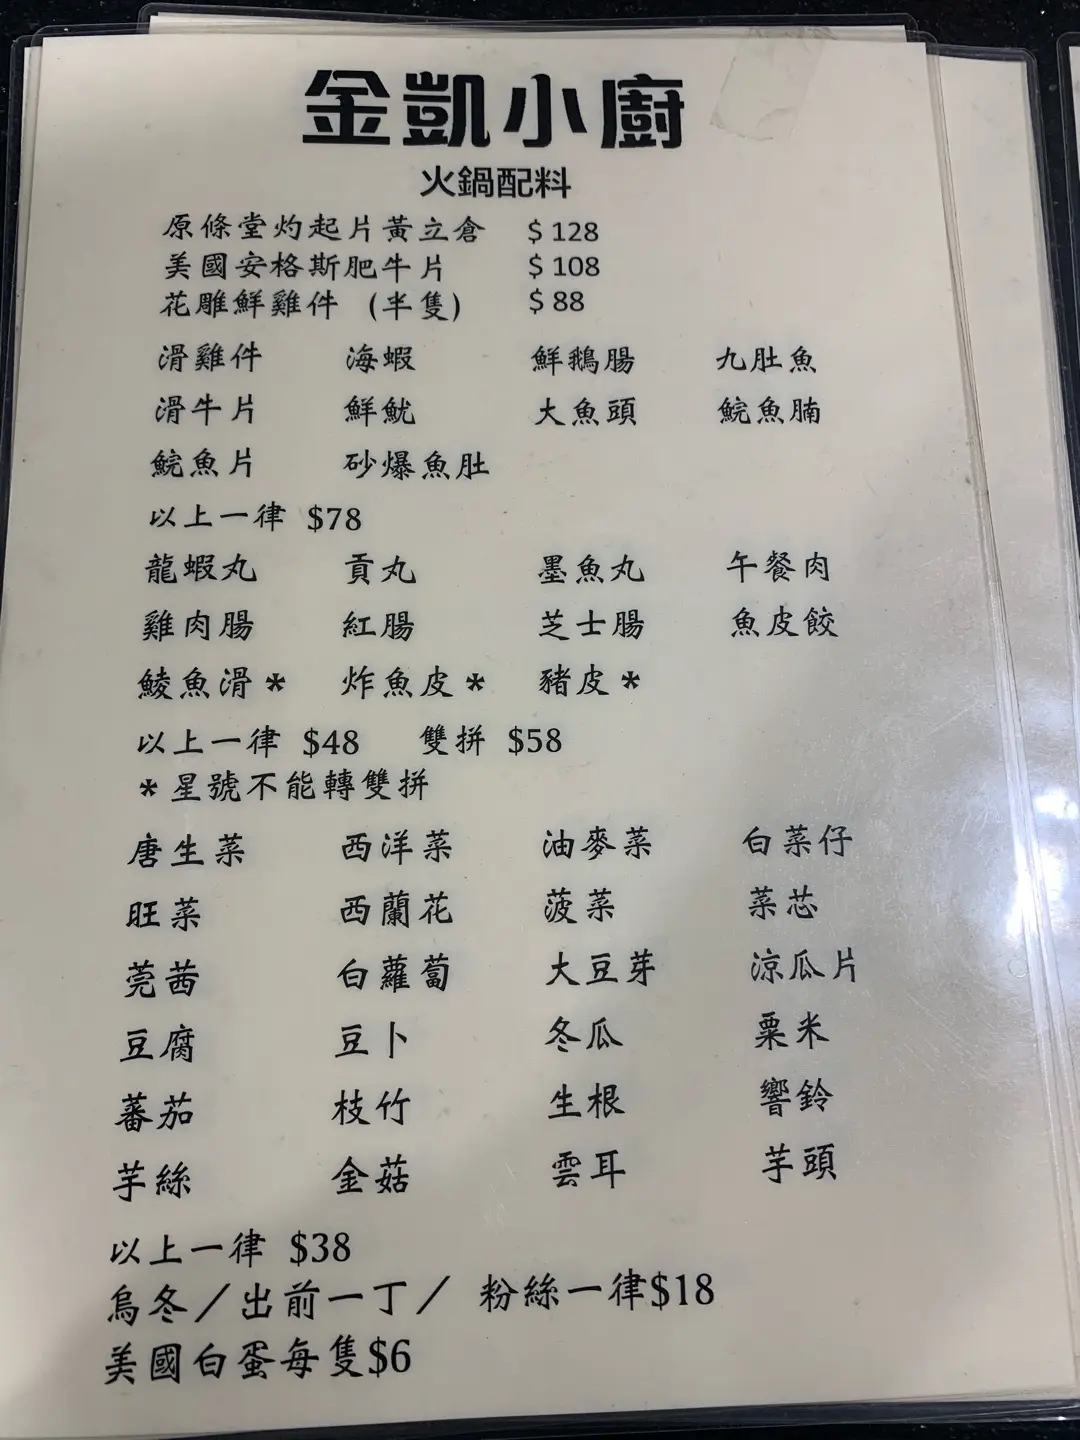 金凱小廚
火鍋配料
原條堂灼起片黃立倉 $128
美國安格斯肥牛片 $108
花雕鮮雞件 (半隻) $88
滑雞件 海蝦 鮮鵝腸 九肚魚
滑牛片 鮮魷 大魚頭 鯇魚腩
鯇魚片 砂爆魚肚
以上一律 $78
龍蝦丸 貢丸 墨魚丸 午餐肉
雞肉腸 紅腸 芝士腸 魚皮餃
鯪魚滑* 炸魚皮* 豬皮*
以上一律 $48 雙拼 $58
*星號不能轉雙拼
唐生菜 西洋菜 油麥菜 白菜仔
旺菜 西蘭花 菠菜 菜芯
莞茜 白蘿蔔 大豆芽 涼瓜片
豆腐 豆卜 冬瓜 粟米
蕃茄 枝竹 生根 響鈴
芋絲 金菇 雲耳 芋頭
以上一律 $38
烏冬/出前一丁/ 粉絲一律$18
美國白蛋每隻$6